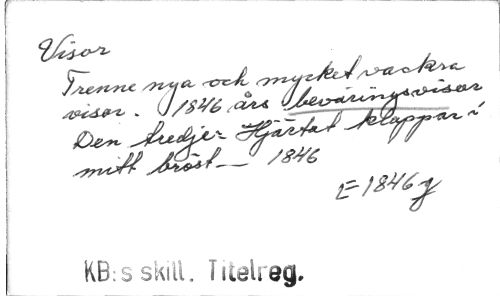 Visor
Trenne nya och mycket vackra
visor. 1846 års beväringsvisor
Den tredje: Hjärtat klappar i
mitt bröst— 1846
E 1846 g
KB:s skill. Titelreg.